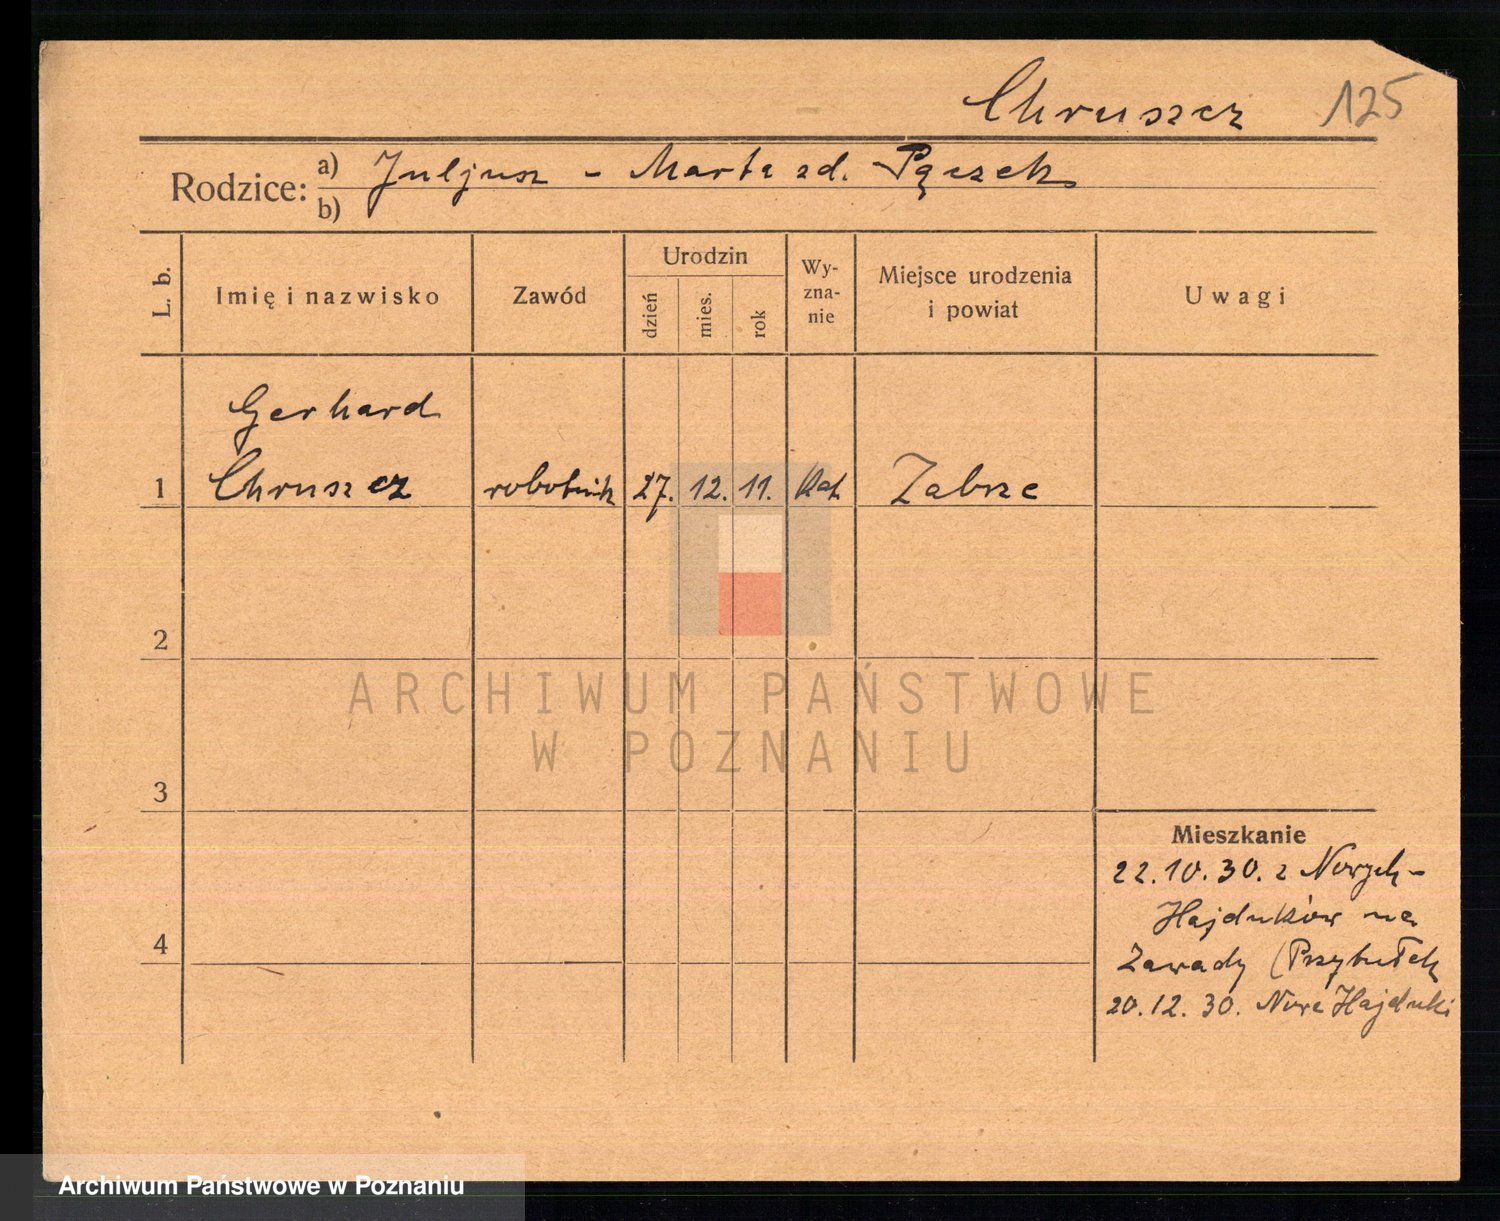 Chruszcz 125
Rodzice: a) Juljusz - Marta zd. Pączek
b)
L. b.
Imię i nazwisko
Zawód
Urodzin
dzień
mies.
rok
Wy-
zna-
nie
Miejsce urodzenia
i powiat
Uwagi
Gerhard
1 Chruszcz robotnik 27. 12. 11. Kat. Zabrze
2
3
4
ARCHIWUM PAŃSTWOWE
W POZNANIU
Mieszkanie
22.10.30. z Nowych-
Hajduków na
Zawady (Przybułek
20.12.30. Nowe Hajduki
Archiwum Państwowe w Poznaniu